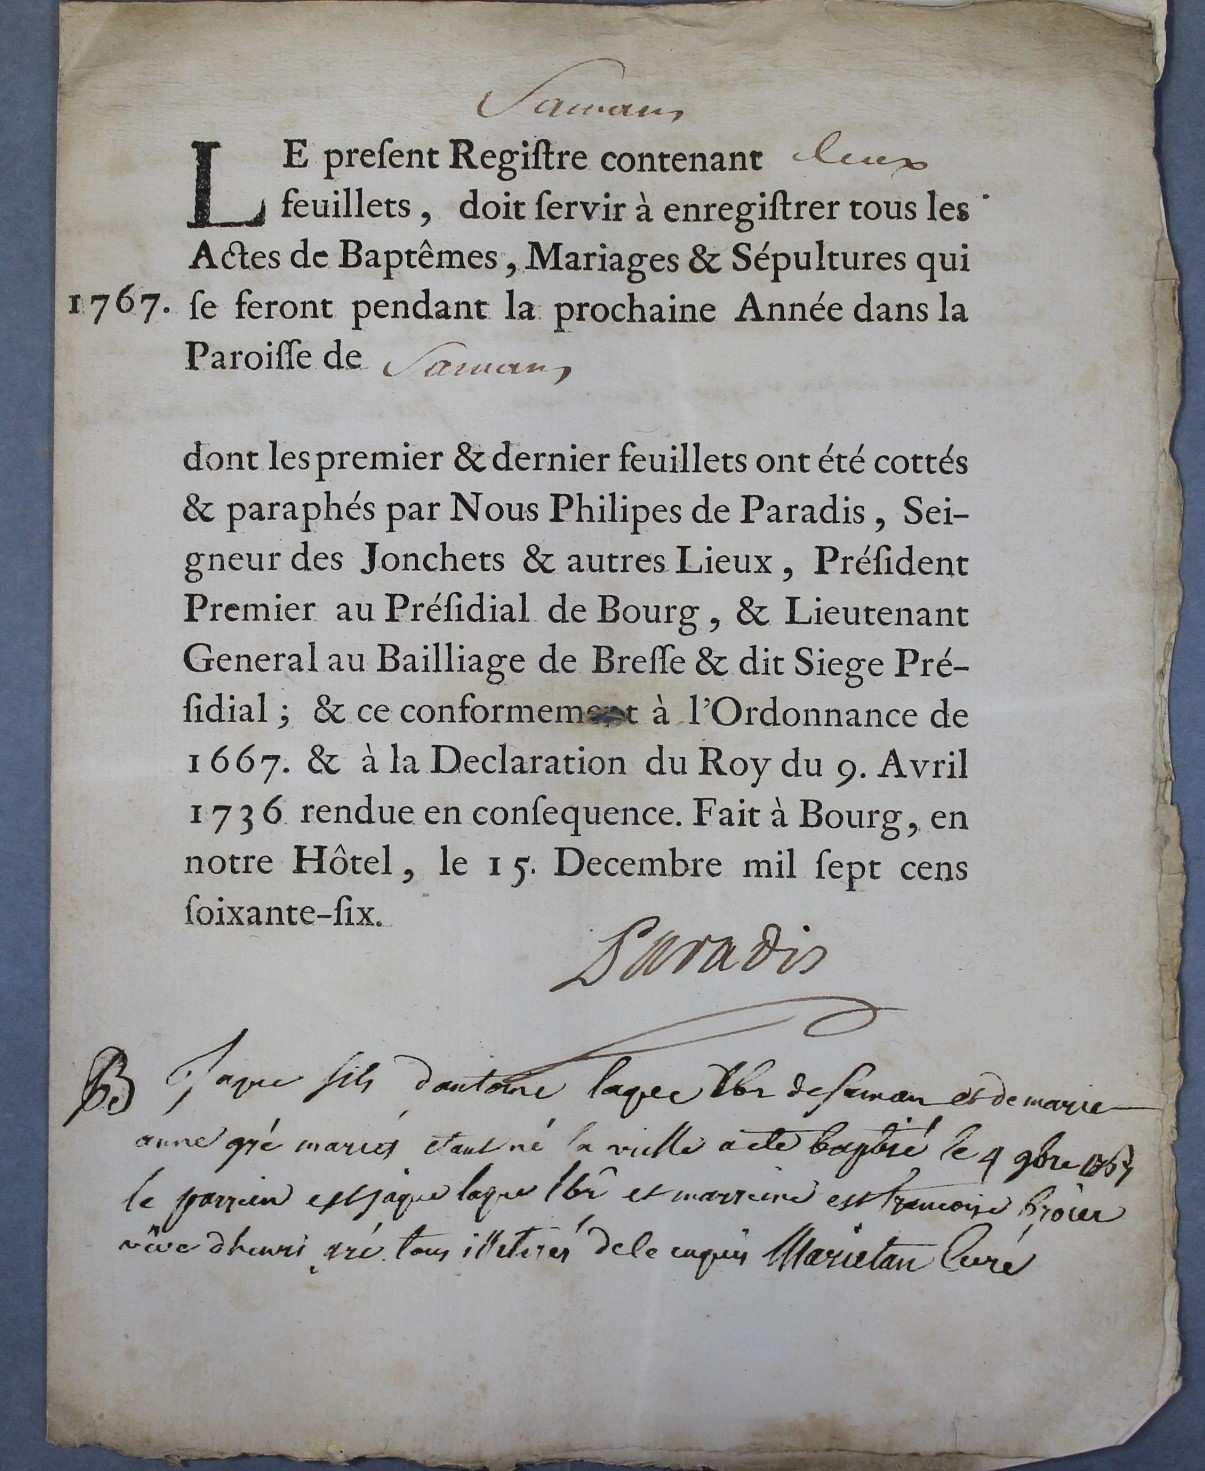 Samans
LE preſent Regiſtre contenant deux
feuillets, doit ſervir à enregiſtrer tous les
Actes de Baptêmes, Mariages & Sépultures qui
1767. ſe feront pendant la prochaine Année dans la
Paroiſſe de Samans
dont les premier & dernier feuillets ont été cottés
& paraphés par Nous Philipes de Paradis, Sei-
gneur des Jonchets & autres Lieux, Préſident
Premier au Préſidial de Bourg, & Lieutenant
General au Bailliage de Breſſe & dit Siege Pré-
ſidial; & ce conformement à l'Ordonnance de
1667. & à la Declaration du Roy du 9. Avril
1736 rendue en conſequence. Fait à Bourg, en
notre Hôtel, le 15. Decembre mil ſept cens
ſoixante-ſix.
Paradis
B Jaque fils d'antoine laque lbr de saman et de marie
anne gré mariés etant né la vielle a ete baptisé le 4 9bre 1767
le parrein est jaque laque lbr et marreine est francoise
vêve d'henri gré tous illeterés de le enquis Marietan Curé